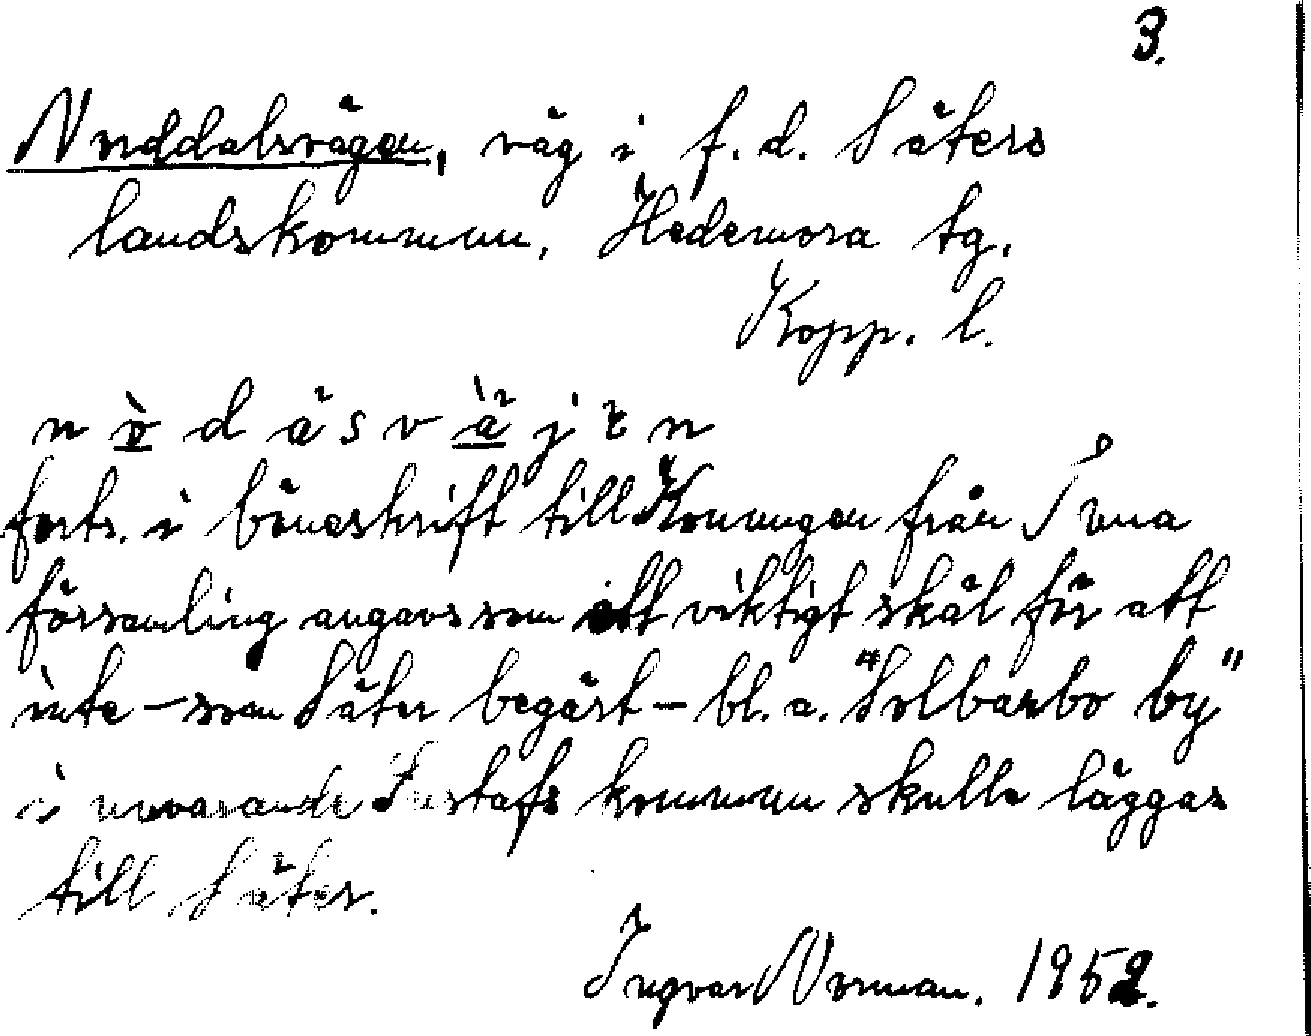 3.
Nuddalsvägen, väg i f. d. Säters
landskommun, Hedemora tg.
Kopp. l.
forts. i böneskrift till Konungen från Tuna
församling angavs som ett viktigt skäl för att
inte – som Säter begärt – bl. a. "Solbarbo by"
i nuvarande Gustafs kommun skulle läggas
till Säter.
Ingvar Norman. 1952.